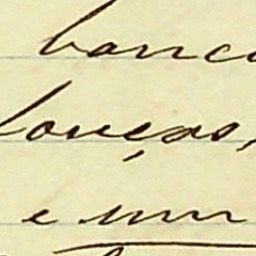 banca
louças,
e um